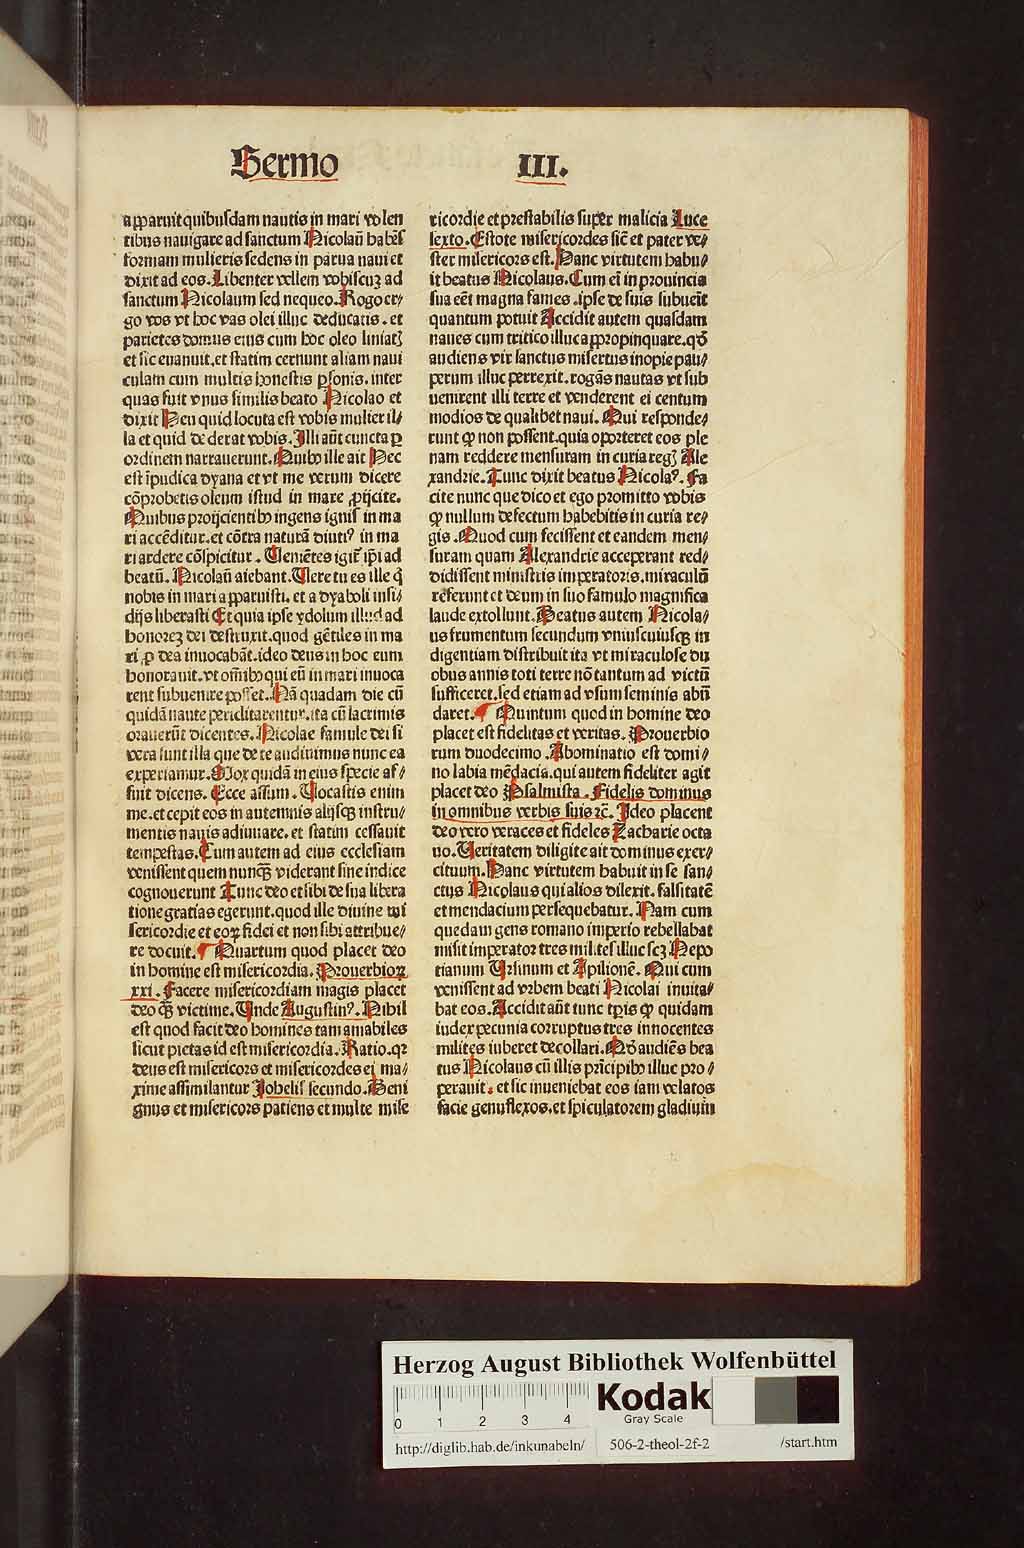 Sermo III.
apparuit quibusdam nautis in mari volen
tibus nauigare ad sanctum Nicolaū habēs
formam mulieris sedens in parua naui et
dixit ad eos. Libenter vellem vobiscuꝫ ad
sanctum Nicolaum sed nequeo. Rogo er⸗
go vos vt hoc vas olei illuc deducatis. et
parietes domus eius cum hoc oleo liniatꝭ
et sic euanuit. et statim cernunt aliam naui
culam cum multis honestis ꝑsonis. inter
quas fuit vnus similis beato Nicolao et
dixit Heu quid locuta est vobis mulier il⸗
la et quid dederat vobis. Illi aūt cuncta ꝑ
ordinem narrauerunt. Quibꝰ ille ait Hec
est īpudica dyana et vt me verum dicere
cōprobetis oleum istud in mare ꝓijcite.
Quibus proijcientibꝰ ingens ignis in ma
ri accēditur. et cōtra naturā diutiꝰ in ma
ri ardere cōspicitur. Veniētes igit̄ ip̄i ad
beatū. Nicolaū aiebant. Vere tu es ille q̄
nobis in mari apparuisti. et a dyaboli insi⸗
dijs liberasti Et quia ipse ydolum illud ad
honoreꝫ dei destruxit. quod gētiles in ma
ri ꝓ dea inuocabāt. ideo deus in hoc eum
honorauit. vt om̄ibꝰ qui eū in mari inuoca
rent subuenire posset. Nā quadam die cū
quidā naute periclitarentur. ita cū lacrimis
orauerūt dicentes. Nicolae famule dei si
vera sunt illa que de te audiuimus nunc ea
experiamur. Mox quidā in eius specie af⸗
fuit dicens. Ecce assum. Vocastis enim
me. et cepit eos in antemnis alijsqꝫ instru⸗
mentis nauis adiuuare. et statim cessauit
tempestas. Cum autem ad eius ecclesiam
venissent quem nunqꝫ viderant sine indice
cognouerunt Tunc deo et sibi de sua libera
tione gratias egerunt. quod ille diuine mi
sericordie et eoꝝ fidei et non sibi attribue⸗
re docuit. Quartum quod placet deo
in homine est misericordia. Prouerbioꝝ
xxi. Facere misericordiam magis placet
deo qꝫ victime. Unde Augustinꝰ. Nihil
est quod facit deo homines tam amabiles
sicut pietas id est misericordia. Ratio. qꝛ
deus est misericors et misericordes ei ma⸗
xime assimilantur Johelis secundo. Beni
gnus et misericors patiens et multe mise
ricordie et prestabilis super malicia Luce
sexto. Estote misericordes sic̄ et pater ve⸗
ster misericors est. Hanc virtutem habu⸗
it beatus Nicolaus. Cum ei̅ in prouincia
sua eēt magna fames. ipse de suis subueīt
quantum potuit Accidit autem quasdam
naues cum tritico illuc appropinquare. qḋ
audiens vir sanctus misertus inopie pau⸗
perum illuc perrexit. rogās nautas vt sub
uenirent illi terre et venderent ei centum
modios de qualibet naui. Qui responde⸗
runt ꝙ non possent. quia oporteret eos ple
nam reddere mensuram in curia regꝭ Ale
xandrie. Tunc dixit beatus Nicolaꝰ. Fa
cite nunc que dico et ego promitto vobis
ꝙ nullum defectum habebitis in curia re⸗
gis. Quod cum fecissent et eandem men⸗
suram quam Alexandrie acceperant red⸗
didissent ministris imperatoris. miraculū
referunt et deum in suo famulo magnifica
laude extollunt. Beatus autem Nicola⸗
us frumentum secundum vniuscuiusqꝫ in
digentiam distribuit ita vt miraculose du
obus annis toti terre nō tantum ad victū
sufficeret. sed etiam ad vsum seminis abū
daret. Quintum quod in homine deo
placet est fidelitas et veritas. Prouerbio
rum duodecimo. Abominatio est domi⸗
no labia mēdacia. qui autem fideliter agit
placet deo Psalmista. Fidelis dominus
in omnibus verbis suis ꝛc. Ideo placent
deo vero veraces et fideles Zacharie octa
uo. Veritatem diligite ait dominus exer⸗
cituum. Hanc virtutem habuit in se san⸗
ctus Nicolaus qui alios dilexit. falsitatē
et mendacium persequebatur. Nam cum
quedam gens romano imperio rebellabat
misit imperator tres milites illuc scꝫ Nepo
tianum Ursinum et Apilionē. Qui cum
venissent ad vrbem beati Nicolai inuita⸗
bat eos. Accidit aūt tunc tp̄is ꝙ quidam
iudex pecunia corruptus tres innocentes
milites iuberet decollari. Qḋ audiēs bea
tus Nicolaus cū illis prīcipibꝰ illuc pro⸗
perauit. et sic inueniebat eos iam velatos
facie genuflexos. et spiculatorem gladium
Herzog August Bibliothek Wolfenbüttel
0 1 2 3 4
Kodak
Gray Scale
http://diglib.hab.de/inkunabeln/ 506-2-theol-2f-2 /start.htm